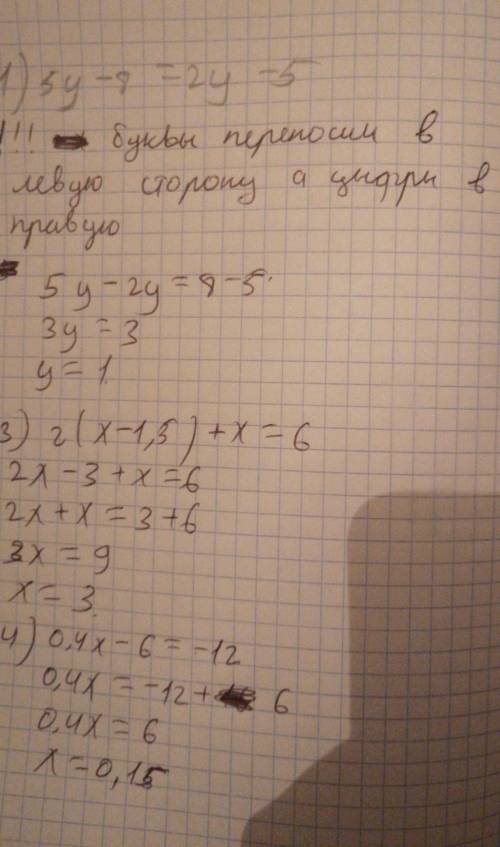 1) 5y-8=2y-5
!!! буквы переносим в
левую сторону а цифры в
правую
5y-2y=8-5
3y=3
y=1
3) 2(x-1,5)+x=6
2x-3+x=6
2x+x=3+6
3x=9
x=3
4) 0,4x-6=-12
0,4x=-12+6
0,4x=6
x=0,15